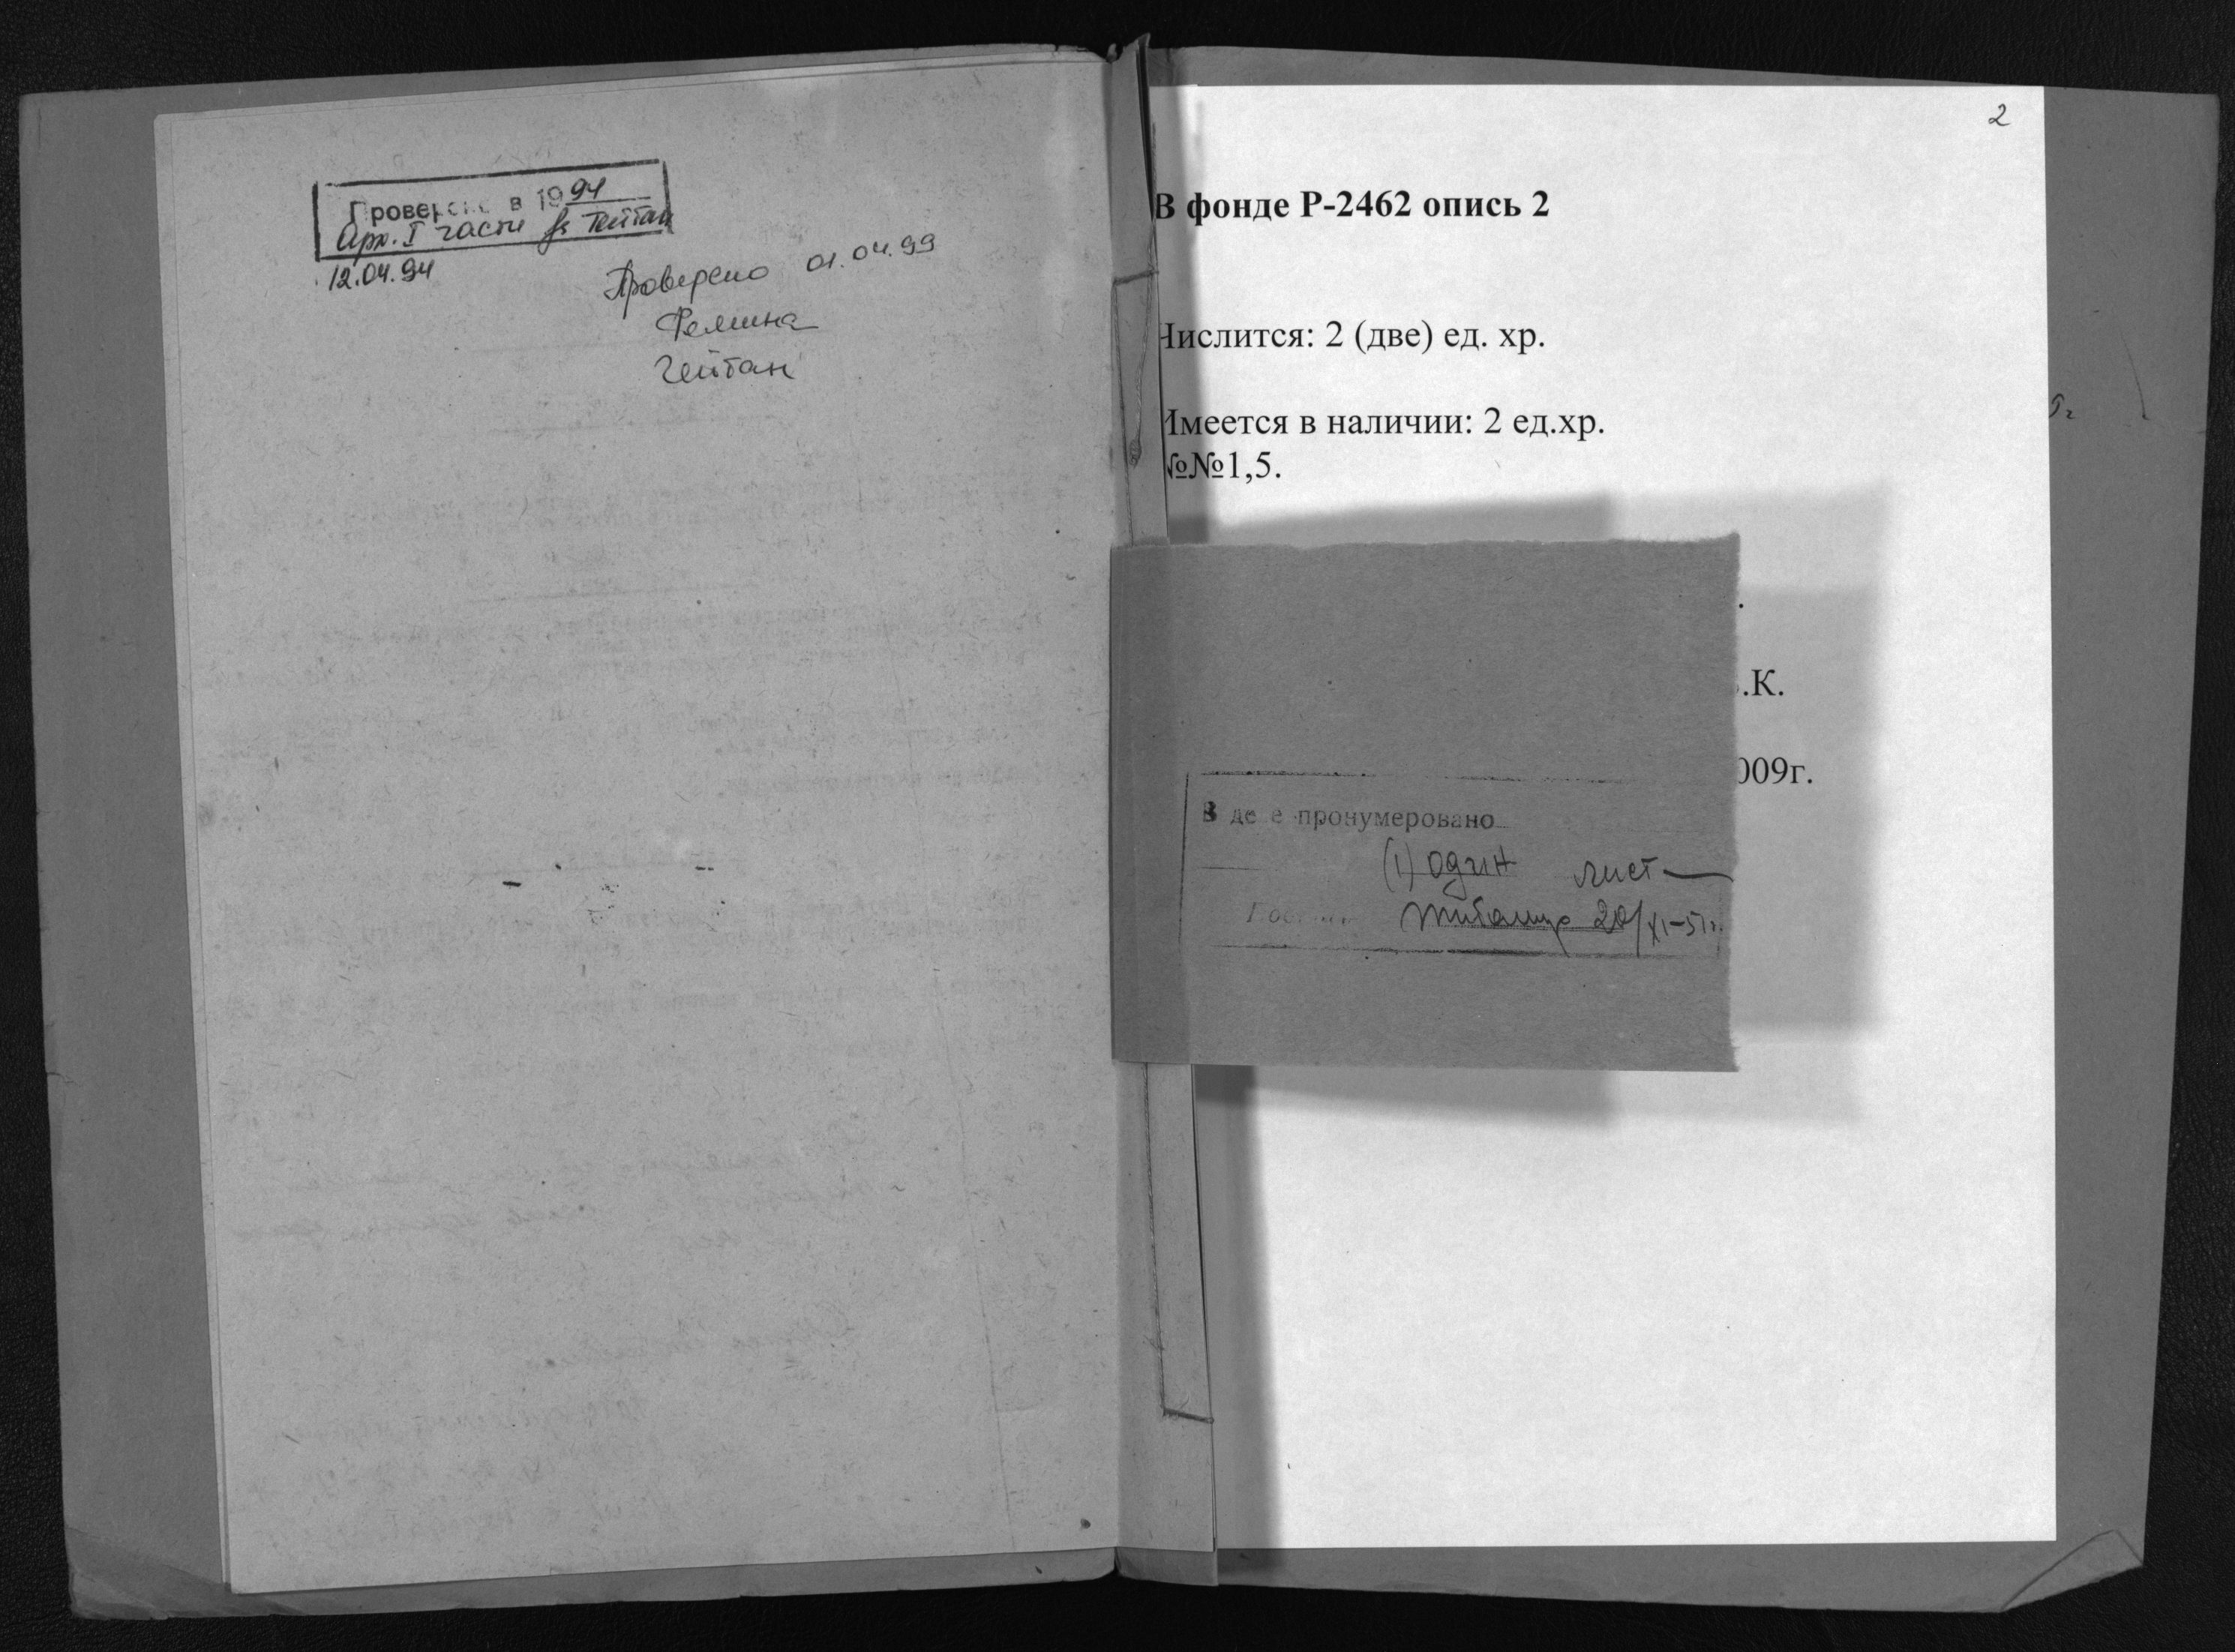 Проверено в 1994
Арх. I части Гейтан
12.04.94
Проверено 01.04.99
Фелина
Гейтан
2
В фонде Р-2462 опись 2
Числится: 2 (две) ед. хр.
Имеется в наличии: 2 ед.хр.
№№1,5.
.К.
009г.
В деле пронумеровано
(1) один лист
20/XI-51г.